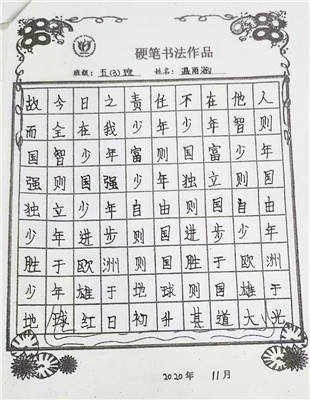 硬笔书法作品
班级：五(3)班 姓名：温雨
故今日之责任不在他人
而全在我少年少年智则
国智少年富则国富少年
强则国强少年独立则国
独立少年自由则国自由
少年进步则国进步少年
胜于欧洲则国胜于欧洲
少年雄于地球则国雄于
地球红日初升其道大光
2020年 11月